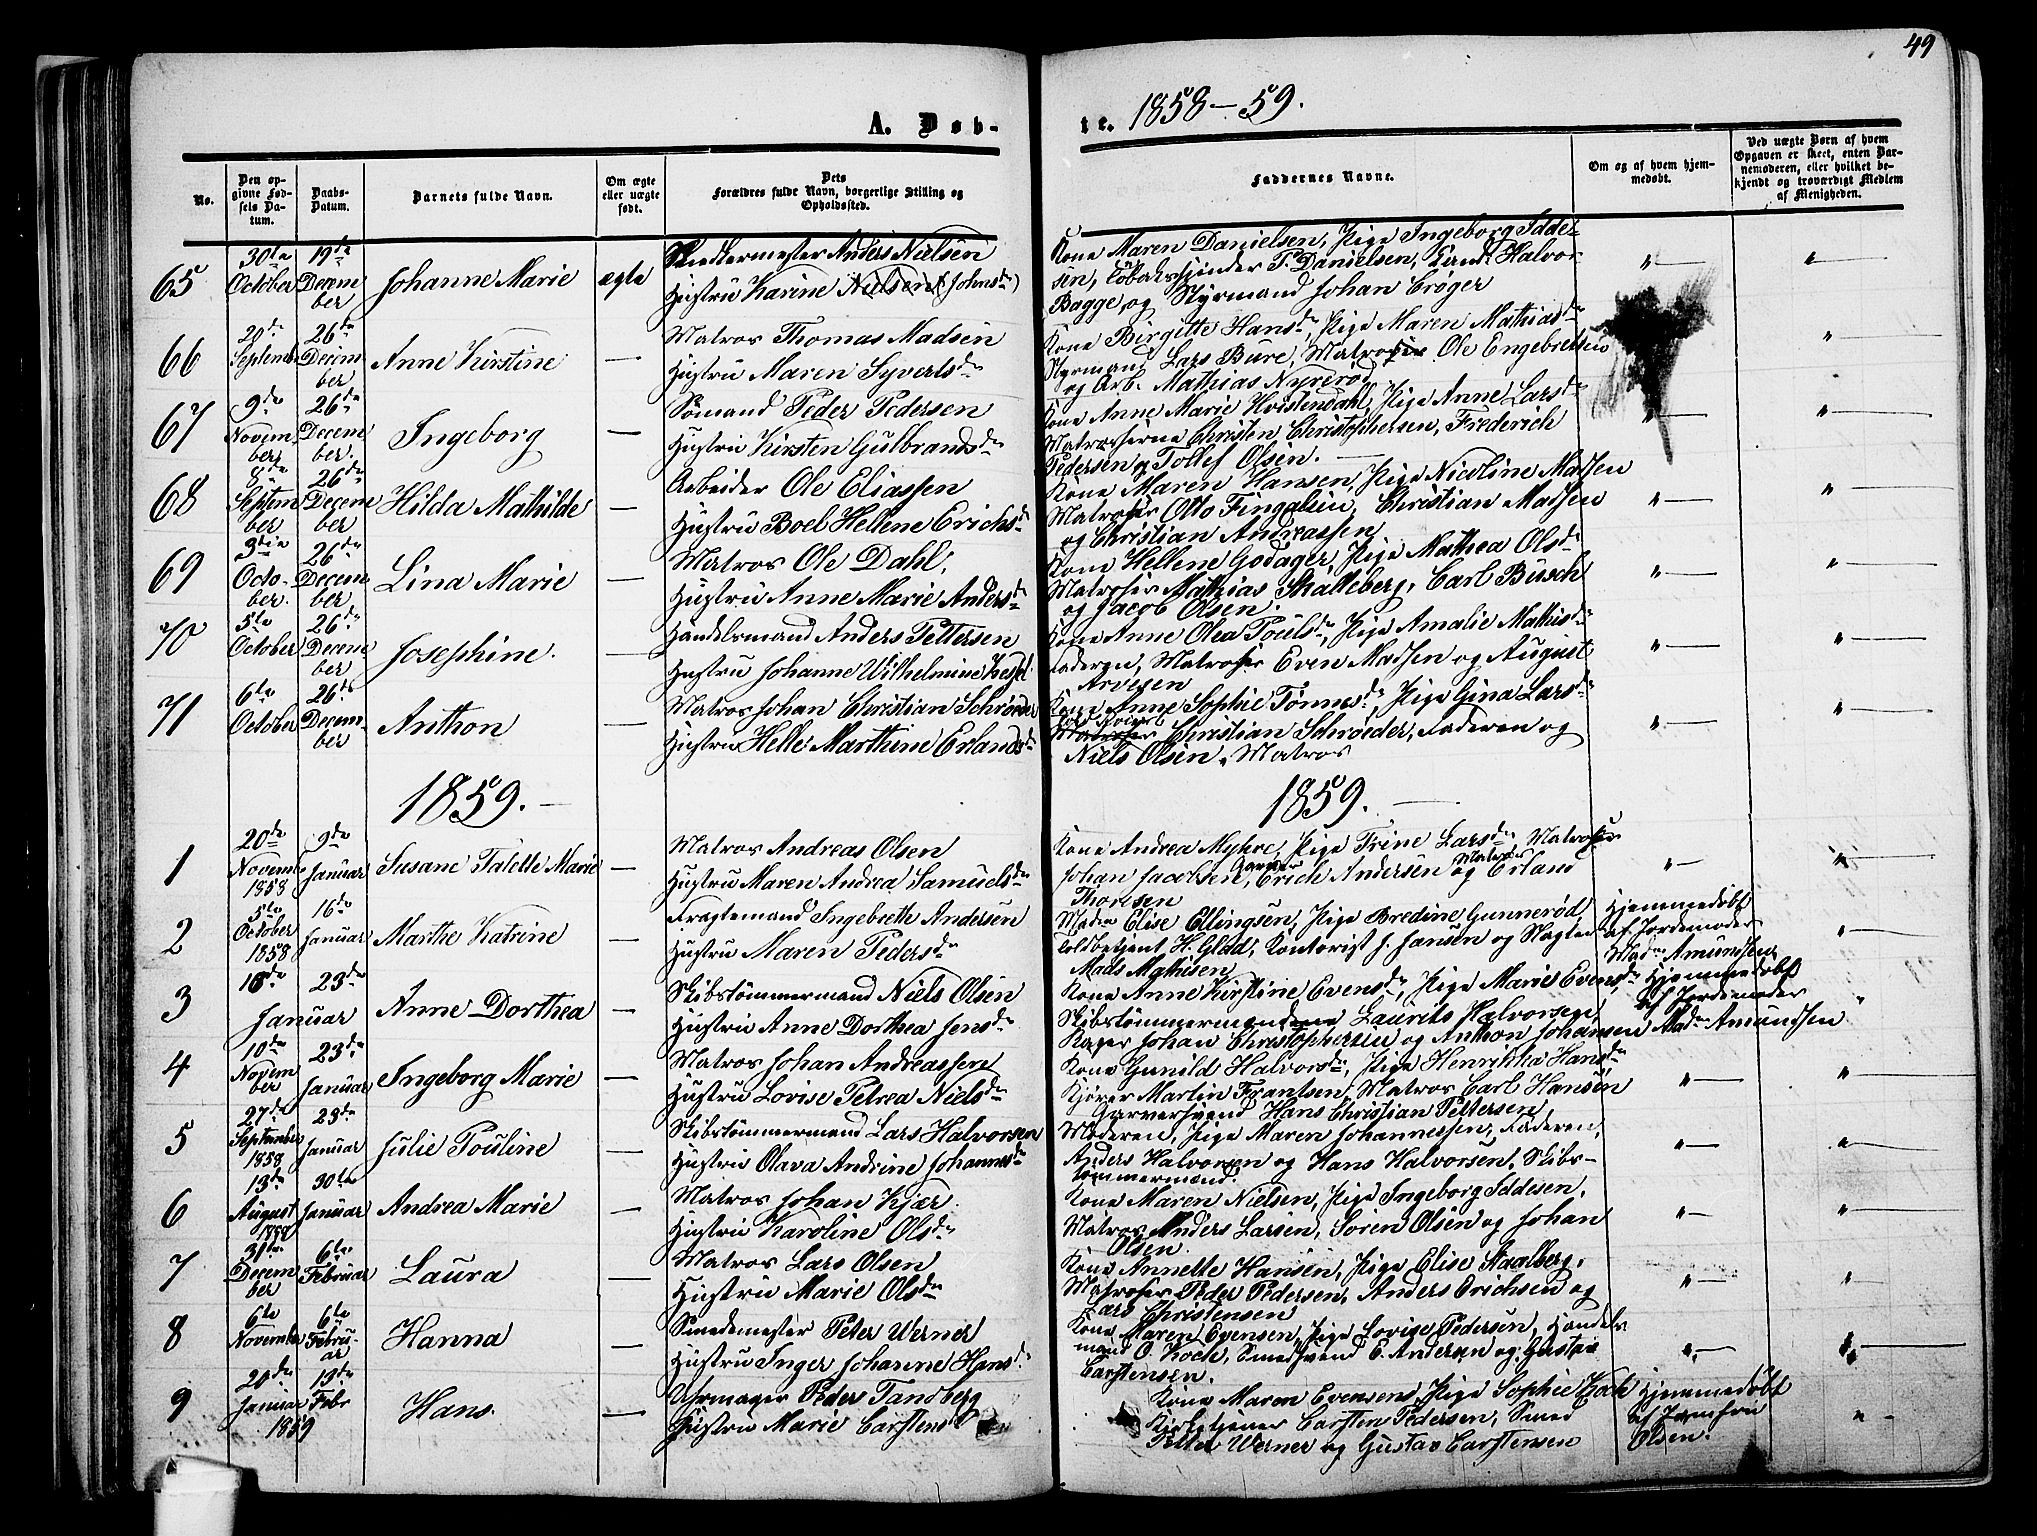 49
A. Døb-
te. 1858-59.
No.
Den op-
givne Fød-
sels Da-
tum.
Daabs-
Datum.
Barnets fulde Navn.
Om ægte
eller uægte
født.
Dets
Forældres fulde Navn, borgerlige Stilling og
Opholdssted.
Faddernes Navne.
Om og af hvem hjem-
medøbt.
Ved uægte Børn af hvem
Opgaven er skeet, enten Bar-
nemoderen, eller hvilket be-
kjendt og troværdigt Medlem
af Menigheden.
65
30te
October
19de
Decem
ber
Johanne Marie
ægte
Snedkermester Anders Nielsen
Hustru Karine Nielsen (Johnsdr)
Kone Maren Danielsen, Pige Ingeborg Idde-
sen, Tobaksspinder T. Danielsen, Halvor
Bagge, og Styrmand Johan Crøger
66
20de
Septemb
26de
Decem
ber
Anne Kirstine
Matros Thomas Madsen
Hustru Maren Syvertsdr
Kone Birgitte Hansdr, Pige Maren Mathiasdr
Styrmand Lars Bure, Matroser Ole Engebretsen
og Arb. Mathias Nyrerød
67
9de
Novem-
ber
26de
Decem
ber.
Ingeborg
Sømand Peder Pedersen
Hustru Kirsten Gulbrandsdr
Kone Anne Marie Hvistendahl, Pige Anne Larsdr
Matroserne Christen Christophersen, Frederich
Pedersen og Tollef Olsen.
68
8de
Septem
ber
26de
Decem
ber
Hilda Mathilde
Arbeider Ole Eliassen
Hustru Boel Hellene Erichsdr
Kone Maren Hansen, Pige Nicoline Madsen
Matroser Otto Fingalsen, Christian Madsen
og Christian Andreassen
69
3die
Octo-
ber.
26de
Decem
ber
Lina Marie
Matros Ole Dahl,
Hustru Anne Marie Andersdr
Kone Hellene Godager, Pige Mathea Olsdr
Matroser Mathias Skalleberg, Carl Busch
og Jacob Olsen.
70
5te
October
26de
Decem
ber
Josephine.
Handelsmand Anders Pettersen
Hustru Johanne Wilhelmine Kessel
Kone Anne Olea Poulsdr, Pige Amalie Mathisdr
Faderen, Matroser Even Madsen og August
Arvesen
71
6te
October
26de
Decem-
ber
Anthon
Matros Johan Christian Schrøder
Hustru Helle Marthine Erlandsdr
Kone Anne Sophie Tønnesdr, Pige Gina Larsdr
Matroser Christian Schrøeder, Faderen og
Niels Olsen, Matros
1859.
1859.
1
20de
Novemb
1858
9de
Januar
Susane Talette Marie
Matros Andreas Olsen
Hustru Maren Andrea Samuelsdr
Kone Andrea Myhre, Pige Trine Larsdr Matroser
Johan Jacobsen, Garver Erich Andersen og Matros Erland
Thoresen
2
5te
October
1858
16de
Januar
Marthe Katrine
Fragtemand Ingebrette Andersen
Hustru Maren Pedersdr
Madm Elise Ellingsen, Pige Bredine Gunnerød,
Toldbetjent H. Glad, Kontorist J. Jansen og Slagter
Mads Mathisen
Hjemmedøbt
af Jordemoder
Madm Amundsen
3
18de
23de
Januar
Anne Dorthea
Skibstømmermand Niels Olsen
Hustru Anne Dorthea Jensdr
Kone Anne Kirstine Evensdr, Pige Marie Evensdr
Skibstømmermændene Laurits Halvorsen,
Johan Christophersen og Anthon Johansen
Hjemmedøbt
af Jordemoder
Madm Amundsen
4
10de
Novem
ber
23de
Januar
Ingeborg Marie
Matros Johan Andreassen
Hustru Lovise Petrea Nielsdr
Kone Gunild Halvorsdr, Pige Henrikka Hansdr
Kjører Martin Frantsen, Matros Carl Hansen
Garversvend Hans Christian Pettersen
5
27de
September
1858
23de
Januar
Julie Pouline
Skibstømmermand Lars Halvorsen
Hustru Olava Andrine Johannesdr
Moderen, Pige Maren Johannessen, Faderen,
Anders Halvorsen og Hans Halvorsen, Skibs-
tømmermænd.
6
13de
August
30te
Januar
Andrea Marie
Matros Johan Kjær
Hustru Karoline Olsdr
Kone Maren Nielsen, Pige Ingeborg Iddesen,
Matros Anders Larsen, Søren Olsen og Johan
Olsen.
7
31te
Decem
ber
6te
Februar
Laura
Matros Lars Olsen
Hustru Marie Olsdr
Kone Annette Hansen, Pige Elise Staalberg,
Matroser Peder Pedersen, Anders Erichsen og
Lars Christensen
8
6te
November
6te
Febru-
ar
Hanna
Smedemester Peter Werner
Hustru Inger Johanne Hansdr
Kone Maren Evensen, Pige Lovise Pedersen, Handels
mand O. Koch, Smedsvend E. Andersen og Gustav
Carstensen.
9
20de
Januar
1859
13de
Febr
Hans.
Uhrmager Peder Tandberg
Hustru Marie Carstens
Kone Maren Evensens, Pige Sophie Koch
Kirketjener Carsten Pedersen, Smed
Petter Werner og Gustav Carstensen
Hjemmedøbt
af Jomfru
Olsen.